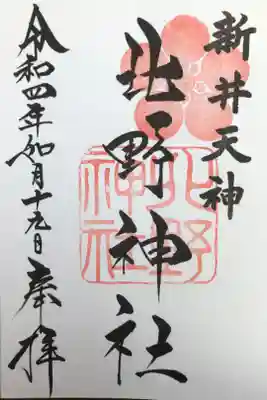 新井天神
北野神社
北野
神社
令和四年如月十九日
奉拝